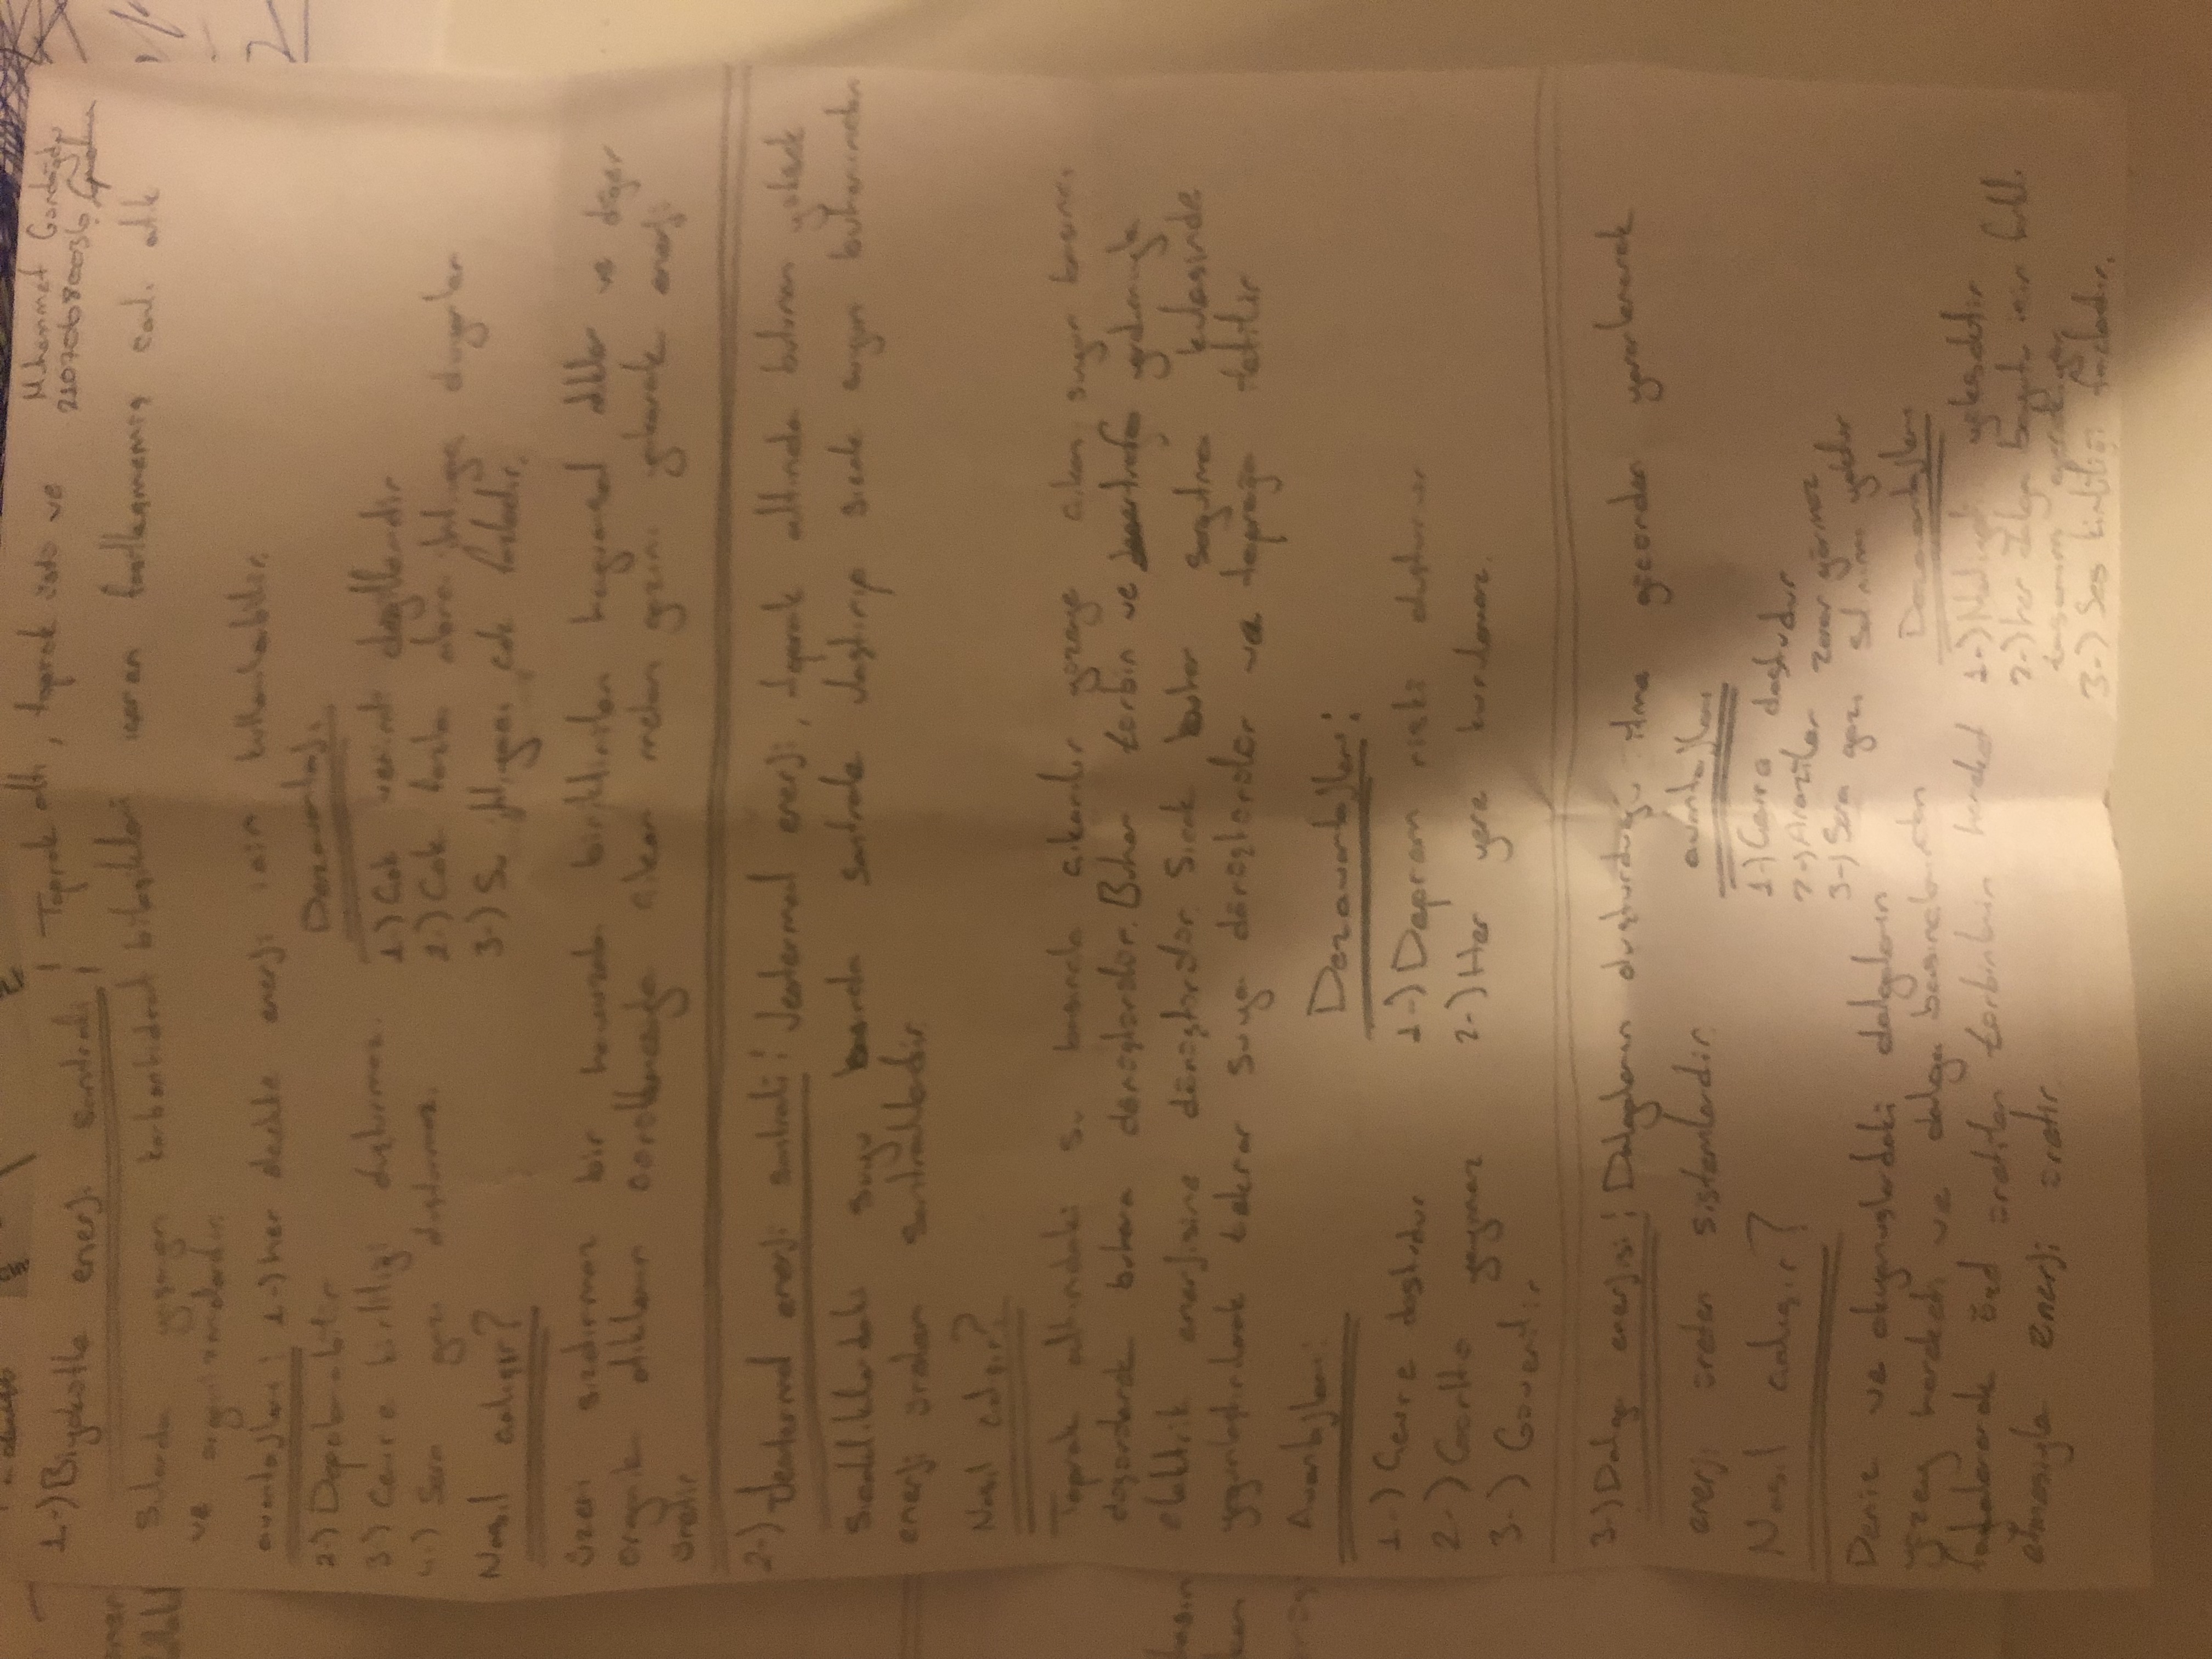 1-) Biyokütle enerji santrali : Toprak altı, toprak üstü ve
Muhammet Gündoğdu
21070680036
Sularda yaşayan karbonhidrat bileşikleri içeren fosilleşmemiş canlı atık
ve organizmalardır.
avantajları : 1-) her ölçekte enerji için kullanılabilir.
2-) Depolanabilir
3-) Çevre kirliliği oluşturmaz.
4-) Sera gazı oluşturmaz.
Dezavantajı
1-) Çok verimli değillerdir
2-) Çok fazla alana ihtiyaç duyarlar
3-) Su ihtiyacı çok fazladır.
Nasıl çalışır?
üzeri sızdırmaz bir havuzda biriktirilen hayvansal atıklar ve diğer
organik atıkların çürütülmesiyle çıkan metan gazını yakarak enerji
üretir
2-) Jeotermal enerji santrali : Jeotermal enerji, toprak altında bulunan yüksek
sıcaklıklardaki suyu basınçla santrale ulaştırıp sıcak suyun buharından
enerji üreten santrallerdir.
Nasıl çalışır?
Toprak altındaki su basınçla çıkarılır yüzeye çıkan suyun basıncı
düşürülerek buhara dönüştürülür. Buhar türbin ve yardımıyla
elektrik enerjisine dönüştürülür. Sıcak buhar soğutma kulesinde
yoğunlaştırılarak tekrar suya dönüştürülür ve toprağa iletilir
Avantajları :
1-) Çevre dostudur
2-) Gürültü yaymaz
3-) Güvenilir
Dezavantajları :
1-) Deprem riski oluşturur
2-) Her yere kurulamaz.
3-) Dalga enerjisi : Dalgaların oluşturduğu itme gücünden yararlanarak
enerji üreten sistemlerdir.
Nasıl çalışır?
Deniz ve okyanuslardaki dalgaların
yüzey hareketi ve dalga basınçlarından
faydalanarak özel üretilen türbinlerin hareket
etmesiyle enerji üretir.
avantajları
1-) Çevre dostudur
2-) Araziler zarar görmez
3-) Sera gazı salınımı yoktur
Dezavantajları
1-) Maliyeti yüksektir
2-) her dalga boyutu için farklı
tasarım gerekiyor
3-) Ses kirliliği fazladır.